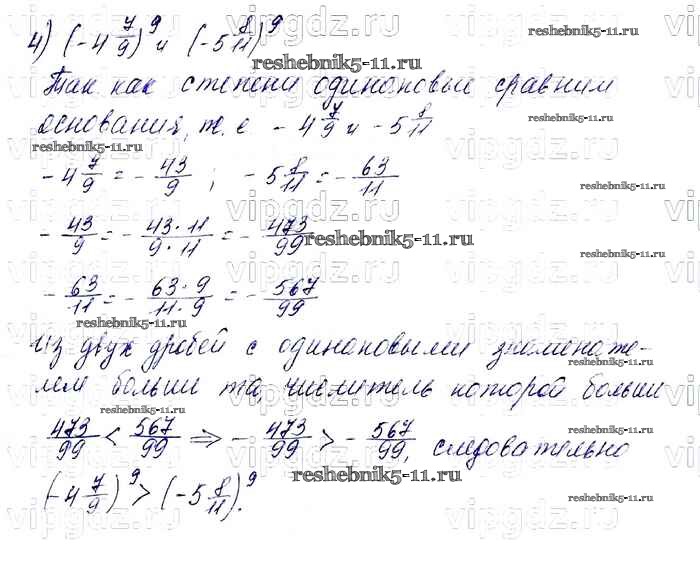 4) (-4 7/9)^9 и (-5 8/11)^9
Так как степени одинаковые сравним
основания, т. е -4 7/9 и -5 8/11
-4 7/9 = -43/9 ; -5 8/11 = -63/11
-43/9 = -43·11/9·11 = -473/99
-63/11 = -63·9/11·9 = -567/99
Из двух дробей с одинаковыми знаменате-
лем больши та, числитель которой больши
473/99 < 567/99 ⇒ -473/99 > -567/99, следовательно
(-4 7/9)^9 > (-5 8/11)^9.
reshebnik5-11.ru
vipgdz.ru